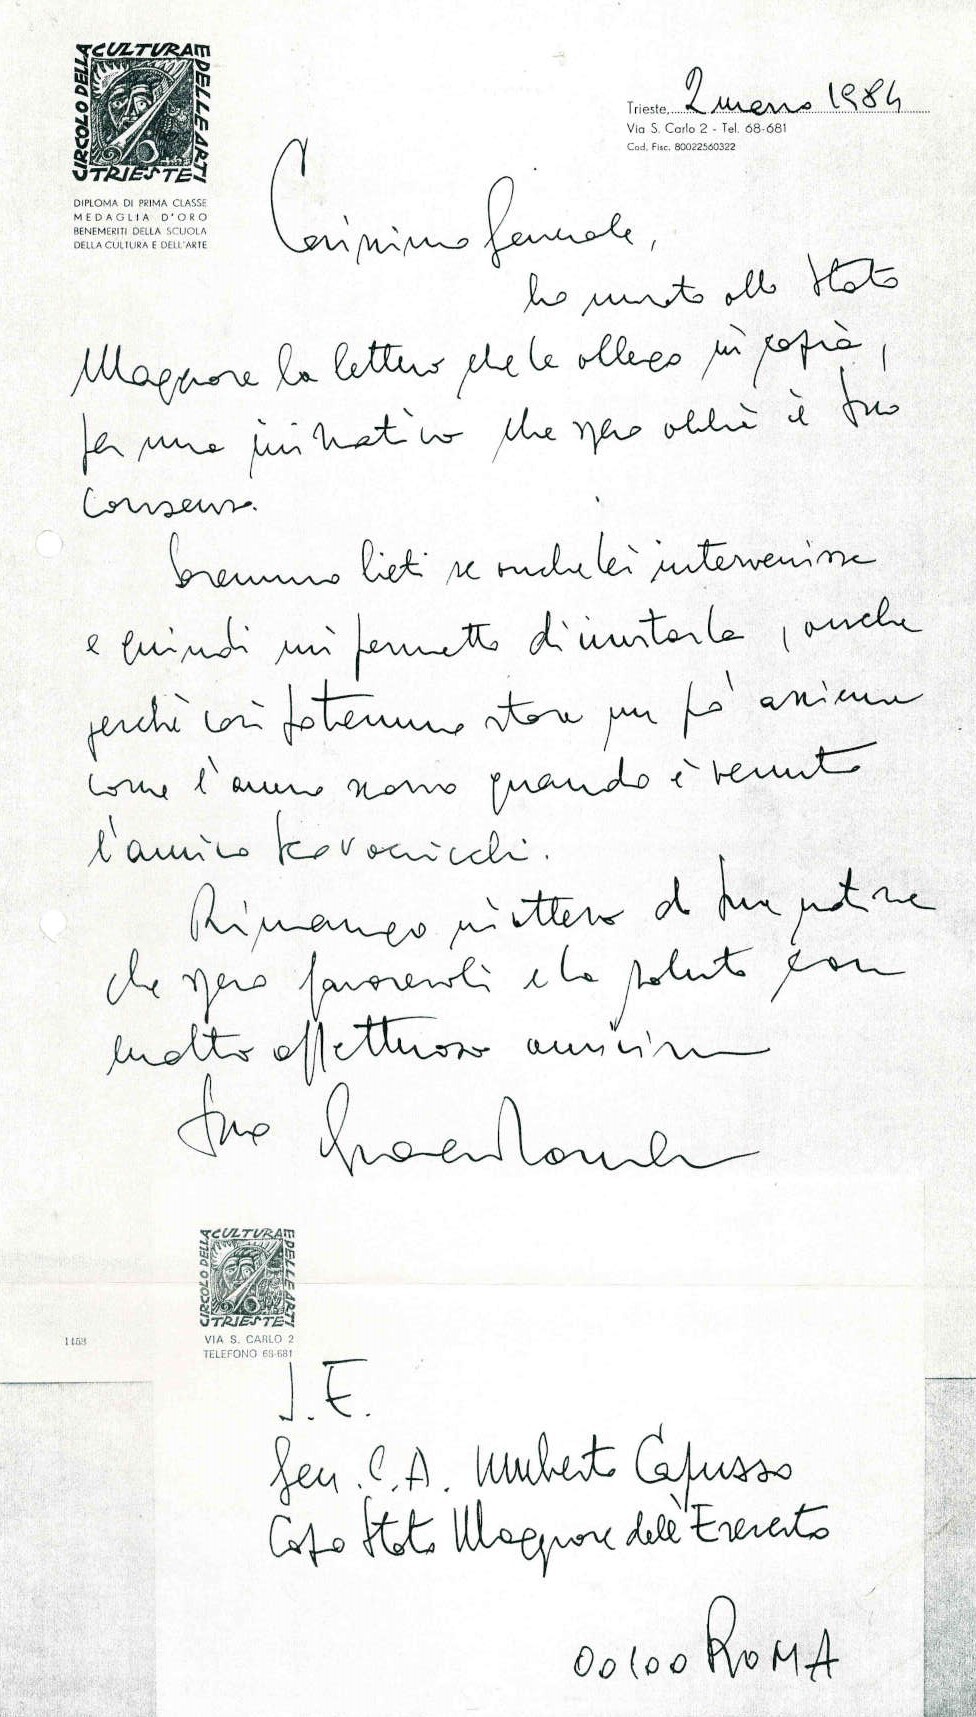 CIRCOLO DELLA CULTURA E DELLE ARTI
TRIESTE
DIPLOMA DI PRIMA CLASSE
MEDAGLIA D'ORO
BENEMERITI DELLA SCUOLA
DELLA CULTURA E DELL'ARTE
Trieste, 2 marzo 1984
Via S. Carlo 2 - Tel. 68-681
Cod. Fisc. 80022560322
Carissimo Generale,
ho inviato allo Stato
Maggiore la lettera che le allego in copia,
per una iniziativa che spero abbia il Suo
consenso.
Saremmo lieti se anche lei intervenisse
e quindi mi permetto di invitarla, anche
perchè così potremmo stare un pò assieme
come l'anno scorso quando è venuto
l'amico
Rimango in attesa di Sue notizie
che spero favorevoli e la saluto con
molto affettuosa amicizia
Suo
CIRCOLO DELLA CULTURA E DELLE ARTI
TRIESTE
VIA S. CARLO 2
TELEFONO 68-681
1453
S.E.
Gen. C.A. Umberto Capuzzo
Capo Stato Maggiore dell'Esercito
00100 ROMA